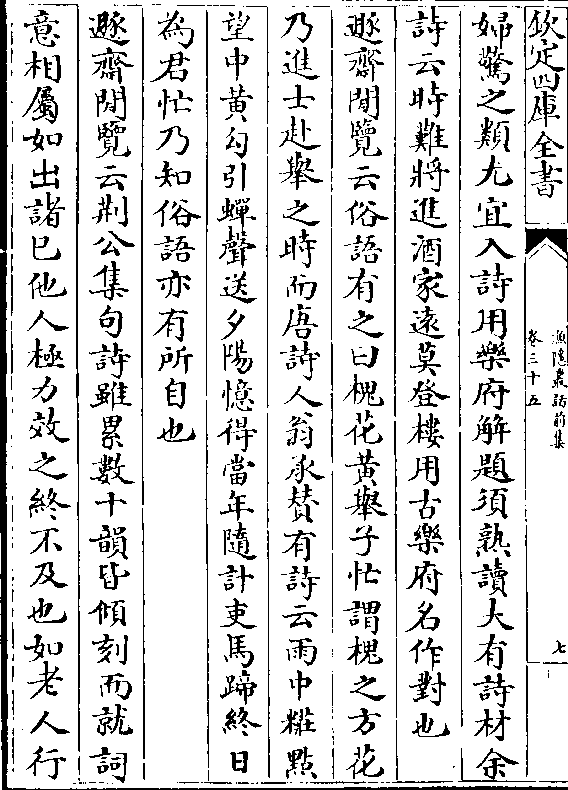 欽定四庫全書
漁隱叢話前集
卷三十五
七
婦驚之類尤宜入詩用樂府解題須熟讀大有詩材余
詩云時難將進酒家遠莫登樓用古樂府名作對也
遯齋閒覽云俗語有之曰槐花黃舉子忙謂槐之方花
乃進士赴舉之時而唐詩人翁承賛有詩云雨中粧㸃
望中黃勾引蟬聲送夕陽憶得當年隨計吏馬蹄終日
為君忙乃知俗語亦有所自也
遯齋閒覽云荆公集句詩雖累數十韻皆傾刻而就詞
意相屬如出諸巳他人極力效之終不及也如老人行